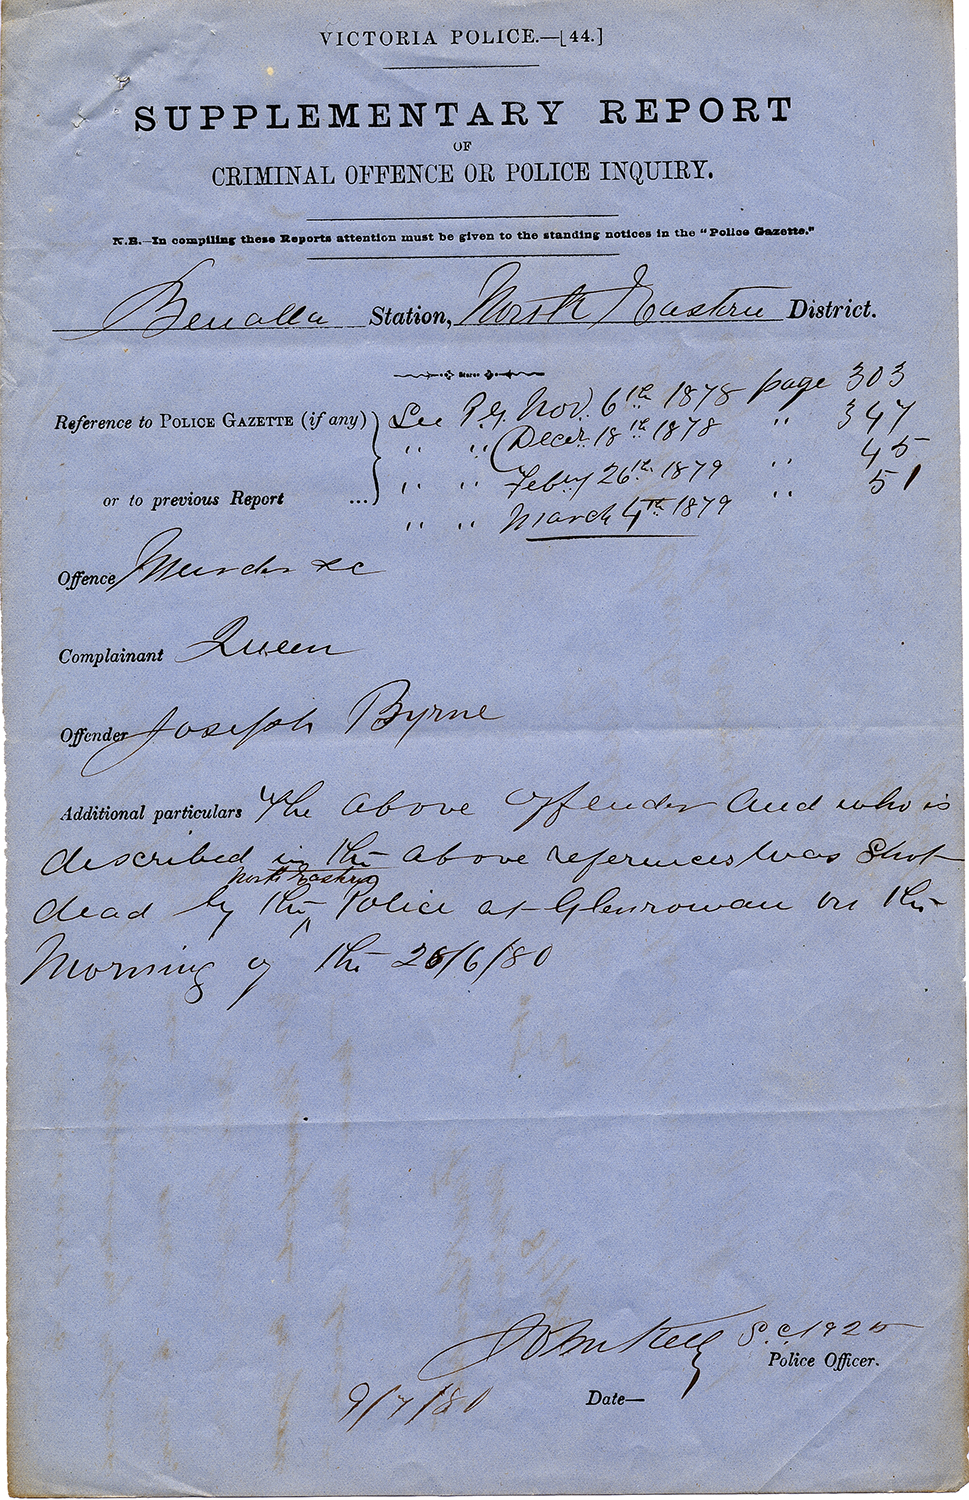 VICTORIA POLICE.—[44.]
SUPPLEMENTARY REPORT
OF
CRIMINAL OFFENCE OR POLICE INQUIRY.
N.B.—In compiling these Reports attention must be given to the standing notices in the "Police Gazette."
Benalla Station, North Eastern District.
Reference to POLICE GAZETTE (if any) See P.G. Nov. 6th 1878 page 303
" " Decer 18th 1878 " 347
or to previous Report ... " " Febuy 26th 1879 " 45
" " March 4th 1879 " 51
Offence Murder &c
Complainant Queen
Offender Joseph Byrne
Additional particulars The above offender and who is
described in the above references was shot
North Eastern
dead by the ^ Police at Glenrowan on the
Morning of the 28/6/80
John Kelly S.C. 1925
Police Officer.
9/7/80 Date—